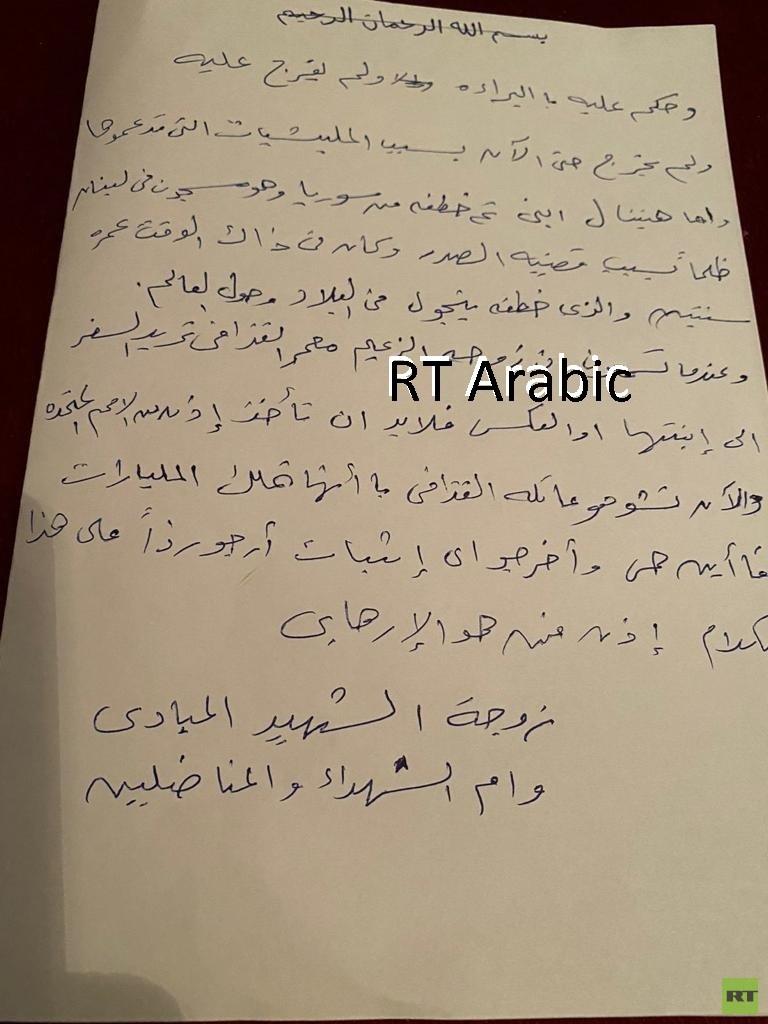 بسم الله الرحمان الرحيم
وحكم عليه با البراءه ولم يفرج عليه
ولم يخرج حتى الآن بسبب المليشيات التى تدعموها
واما هنيبال ابنى تم خطفه من سوريا وهو مسجون فى لبنان
ظلماً بسبب قضيه الصدر وكان فى ذاك الوقت عمره
سنتين والذى خطفه يتجول فى البلاد وحول العالم.
وعندما الزعيم معمر القذافى تريد السفر
الى إبنتها او العكس فلابد ان تأخذ إذن من الامم المتحده
والآن تشوهو عائله القذافى با أنها تملك المليارات
فاأين هى وأخرجو اى إثبات أرجو رذاً على هذا
الكلام إذن من هو الإرهابى
زوجة الشهيد المبادى
وام الشهداء والمناضلين
RT Arabic
RT